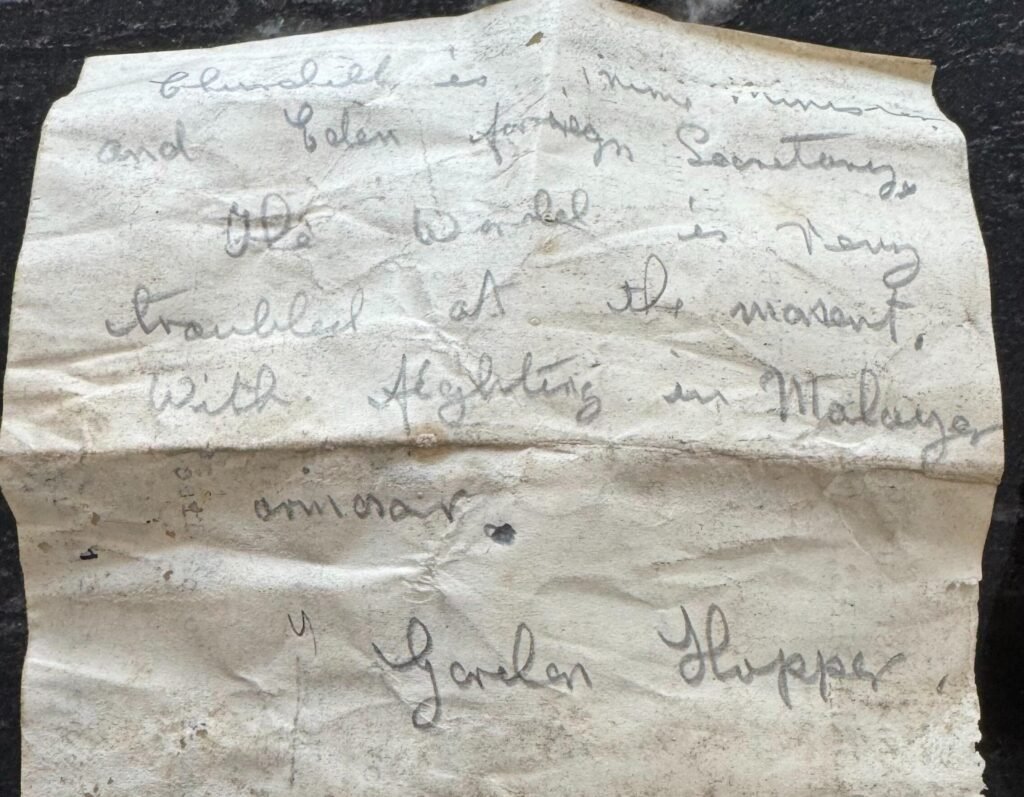 Churchill is Prime Minister
and Eden foreign Secretary.
The World is very
troubled at the moment,
With fighting in Malaya
Gordon Hopper.